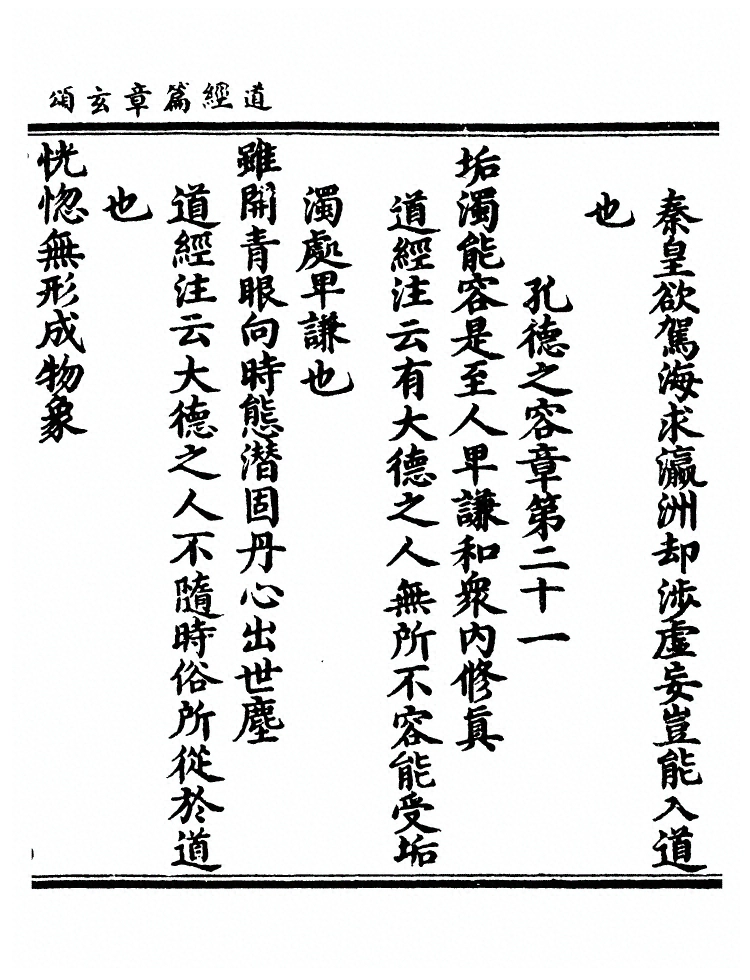 道經篇章玄頌
秦皇欲駕海求瀛洲却涉虛妄豈能入道
也
孔德之容章第二十一
垢濁能容是至人卑謙和衆內修眞
道經注云有大德之人無所不容能受垢
濁處卑謙也
雖開青眼向時態潛固丹心出世塵
道經注云大德之人不隨時俗所從於道
也
恍惚無形成物象